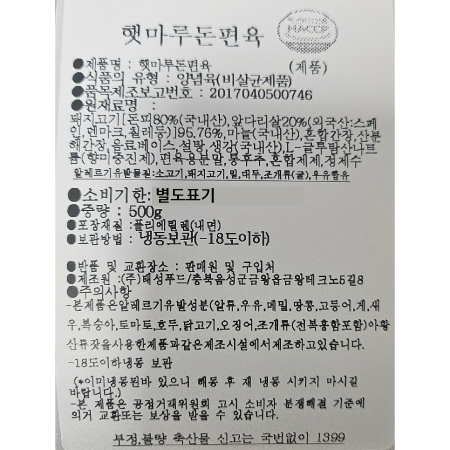 햇마루돈편육
HACCP
●제품명 : 햇마루돈편육 (제품)
●식품의 유형 : 양념육(비살균제품)
●품목제조보고번호 : 2017040500746
●원재료명 :
돼지고기[돈피80%(국내산),앞다리살20%(외국산:스페
인,덴마크,칠레등)]95.76%,마늘(국내산),혼합간장,산분
해간장,음료베이스,설탕,생강(국내산),L-글루탐산나트
륨(향미증진제),편육용분말,봉후추,혼합제제,정제수
알레르기유발물질:소고기,돼지고기,밀,대두,조개류(굴),우유함유
●소비기한: 별도표기
●중량 : 500g
●포장재질 : 폴리에틸렌(내면)
●보관방법 : 냉동보관(-18도이하)
●반품 및 교환장소 : 판매원 및 구입처
●제조원 :(주)태성푸드/충북음성군금왕읍금왕테크노5길8
●주의사항
-본제품은알레르기유발성분(알류,우유,메밀,땅콩,고등어,게,새
우,복숭아,토마토,호두,닭고기,오징어,조개류(전복홍합포함)아황
산류,잣을사용한제품과같은제조시설에서제조하고있습니다.
-18도이하냉동 보관
(*이미냉동된바 있으니 해동 후 재 냉동 시키지 마시길
바랍니다.)
-본 제품은 공정거래위원회 고시 소비자 분쟁해결 기준에
의거 교환또는 보상을 받을 수 있습니다.
부정,불량 축산물 신고는 국번없이 1399